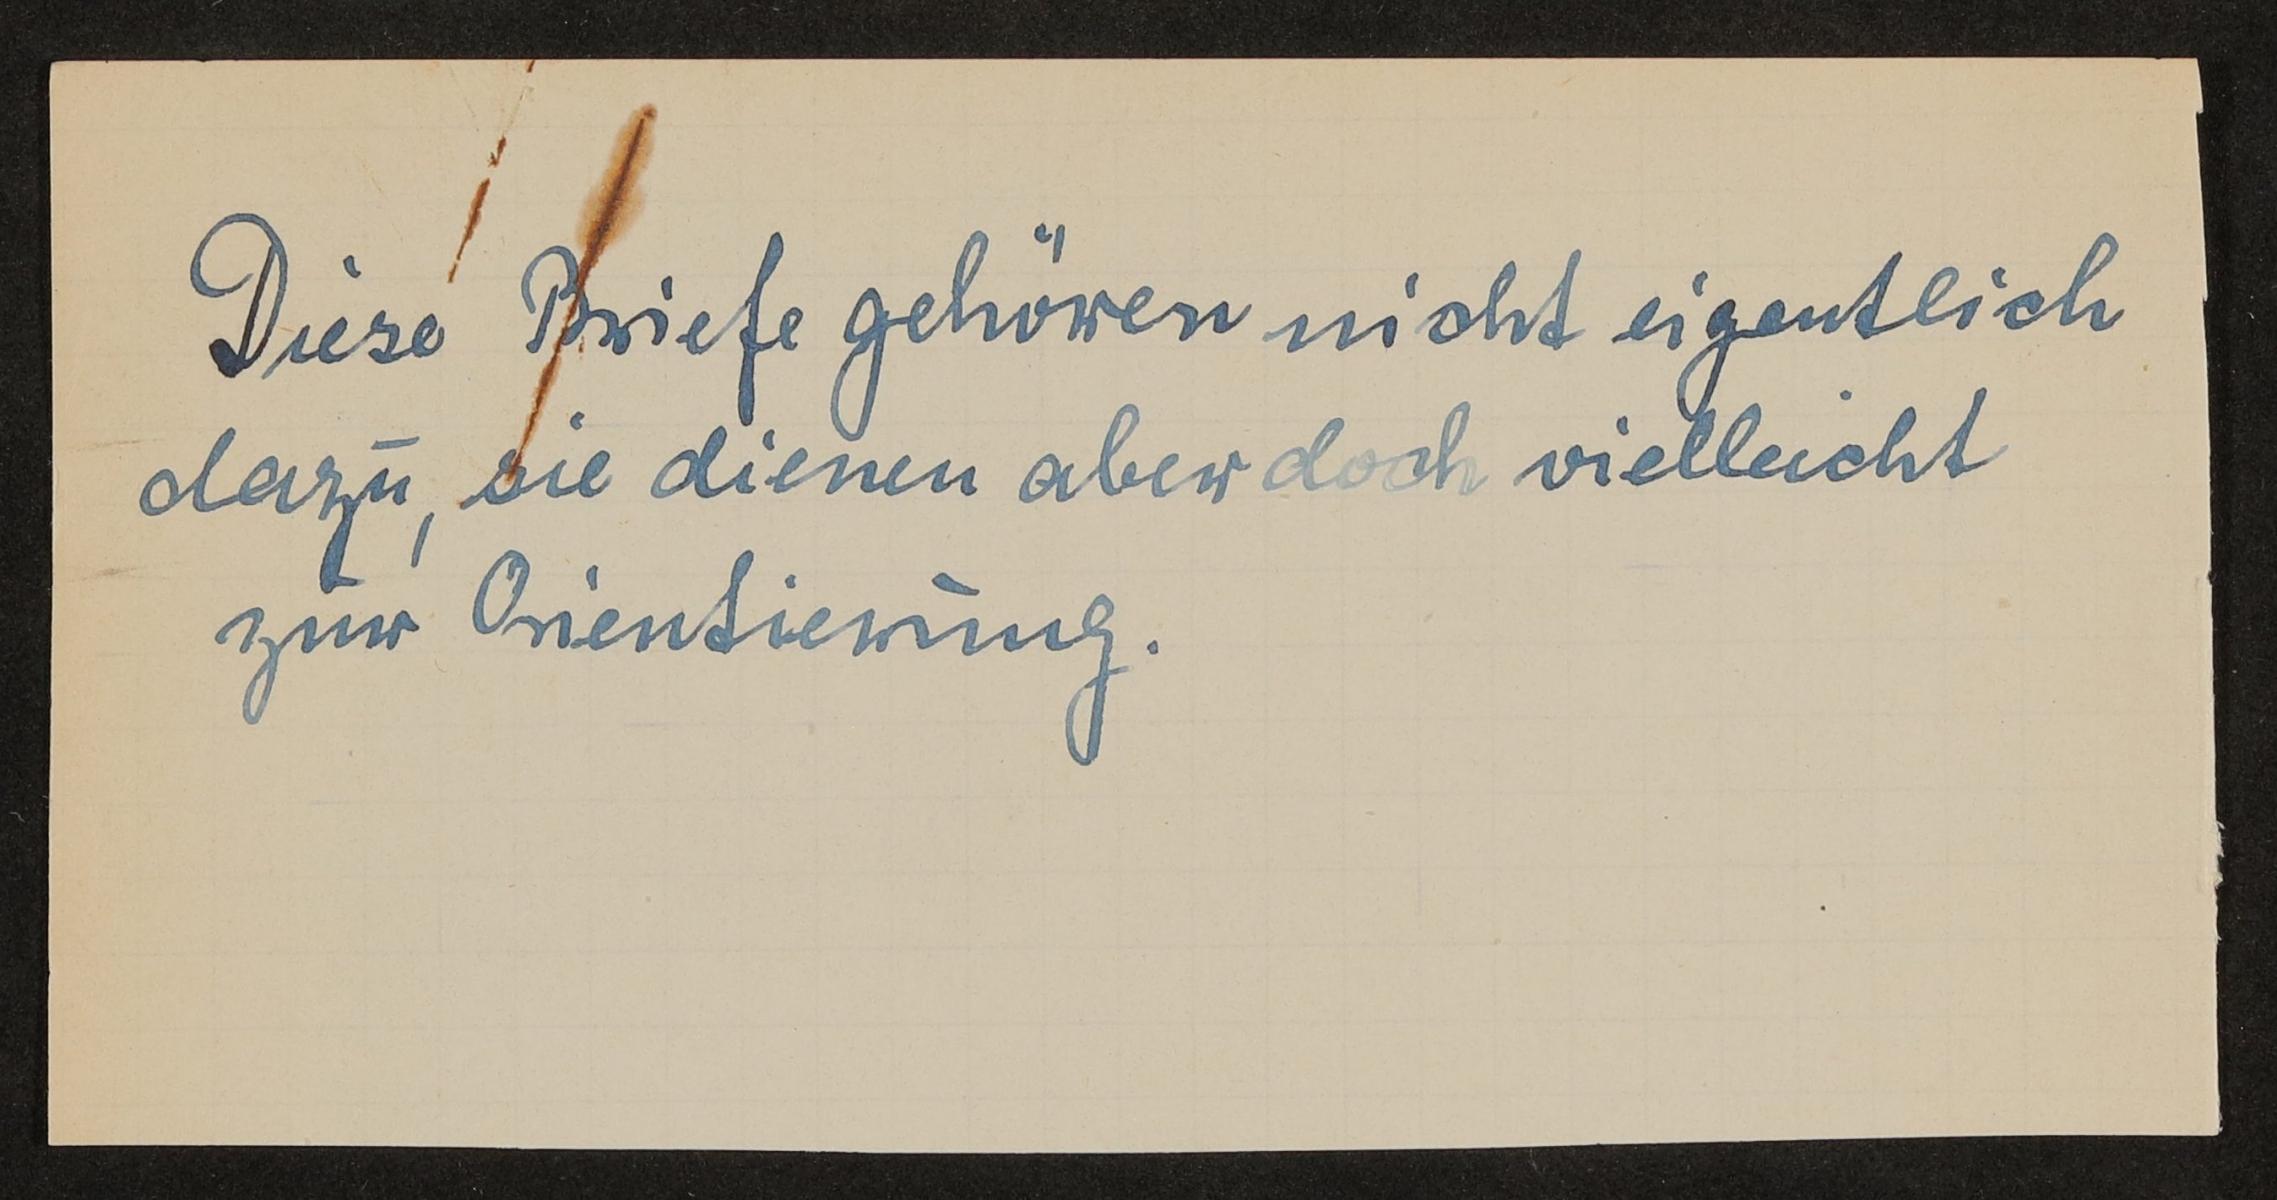 Diese Briefe gehören nicht eigentlich
dazu, sie dienen aber doch vielleicht
zur Orientierung.